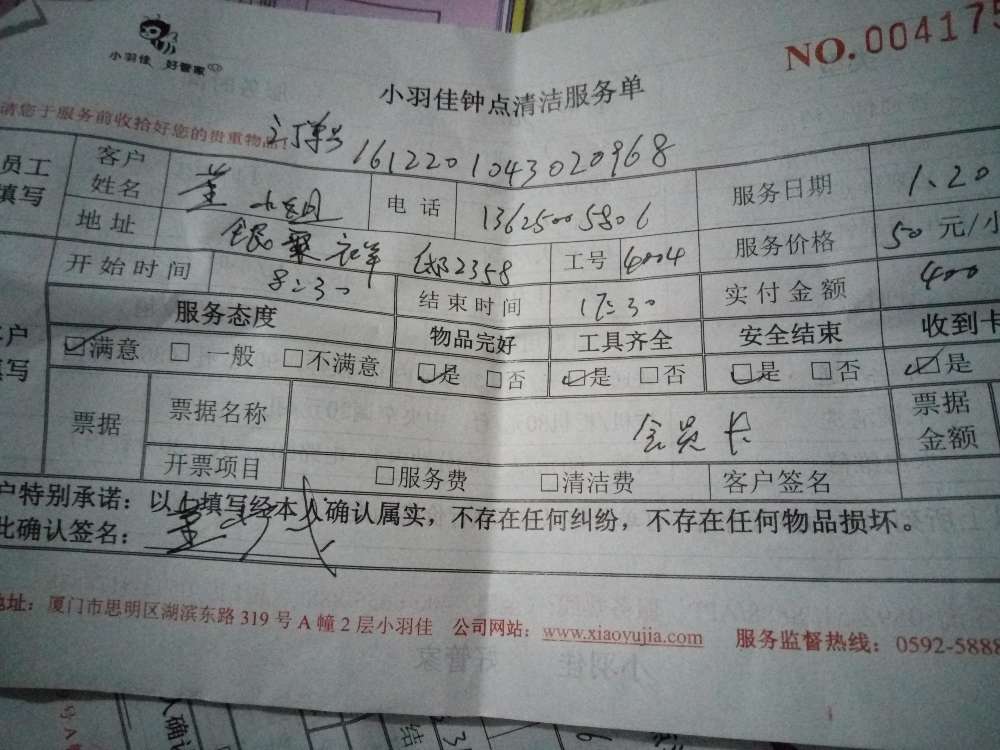 小羽佳 好管家
NO.004175
小羽佳钟点清洁服务单
请您于服务前收拾好您的贵重物品!
订单号 1612201043020968
员工填写 客户姓名 小姐 电话 13625005806 服务日期 1.20
地址 2358 工号 4004 服务价格 50元/小
开始时间 8:30 结束时间 17:30 实付金额 400
服务态度 物品完好 工具齐全 安全结束 收到卡
户写 ☑满意 □一般 □不满意 ☑是 □否 ☑是 □否 ☑是 □否 ☑是
票据 票据名称 会员卡 票据金额
开票项目 □服务费 □清洁费 客户签名
户特别承诺:以上填写经本人确认属实,不存在任何纠纷,不存在任何物品损坏。
此确认签名:
地址:厦门市思明区湖滨东路319号A幢2层小羽佳 公司网站:www.xiaoyujia.com 服务监督热线:0592-5888